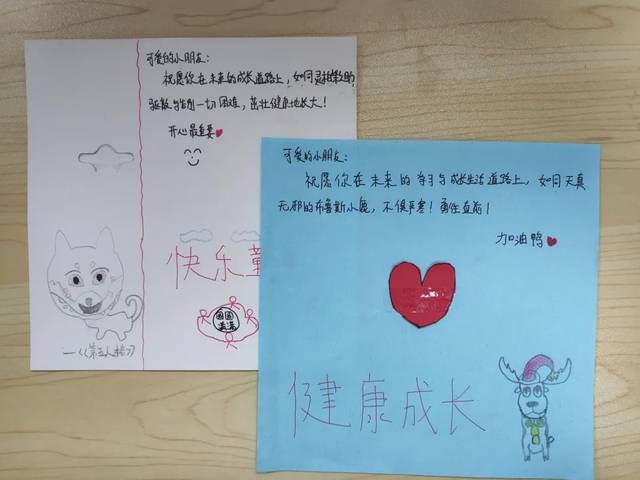 可爱的小朋友：
祝愿你在未来的成长道路上，如同灵
一切困难，茁壮健康地长大！
开心最重要
快乐童
圆圆
满满
—《第五人格》
可爱的小朋友：
祝愿你在未来的学习与成长生活道路上，如同天真
无邪的布鲁斯小鹿，不惧严寒！勇往直前！
加油鸭
健康成长